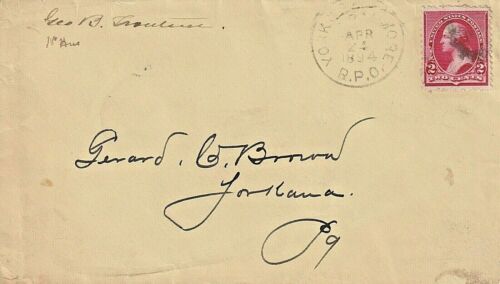 Geo B.
YORK & BALTIMORE.
APR
24
1894
R.P.O.
UNITED STATES POSTAGE
2 2
TWO CENTS
Gerard. C. Brown
Yorkana.
Pa